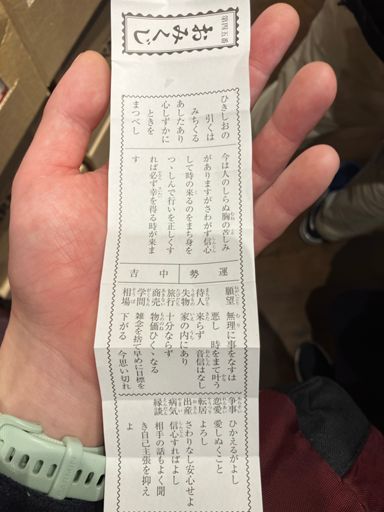 第四五番
おみくじ
ひきしおの
引くは
みちくる
あしたあり
心しずかに
ときを
まつべし
今は人のしらぬ胸の苦しみ
がありますがさわがず信心
して時の来るのをまち身を
つゝしんで行いを正しくす
れば必ず幸を得る時が来ま
す
運勢 中吉
願望 無理に事をなすは
悪し 時をまて叶う
待人 来らず 音信はなし
失物 家の内にあり
旅行 十分ならず
商売 物価ひくゝなる
学問 雑念を捨て早めに目標を
相場 下がる 今思い切れ
争事 ひかえるがよし
恋愛 愛しぬくこと
転居 よろし
出産 さわりなし安心せよ
病気 信心すればよし
縁談 相手の話もよく聞
き自己主張を抑え
よ